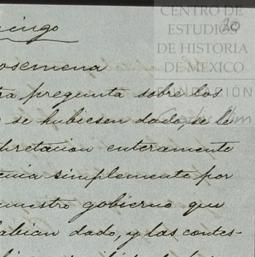 CENTRO DE
ESTUDIOS
DE HISTORIA
DE MEXICO
20
osemena
ra pregunta sobre los
se hubiesen dado, se le
bretacion enteramente
enia simplemente por
nuestro gobierno que
abian dado, y las contes-